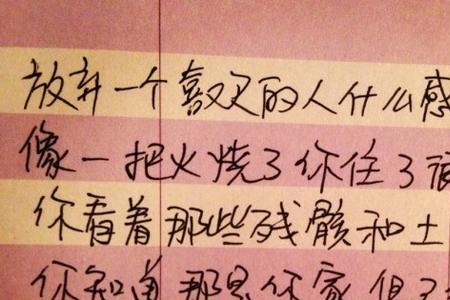 放弃一个喜欢的人什么感
像一把火烧了你住了很
你看着那些残骸和土
你知道那是你家但